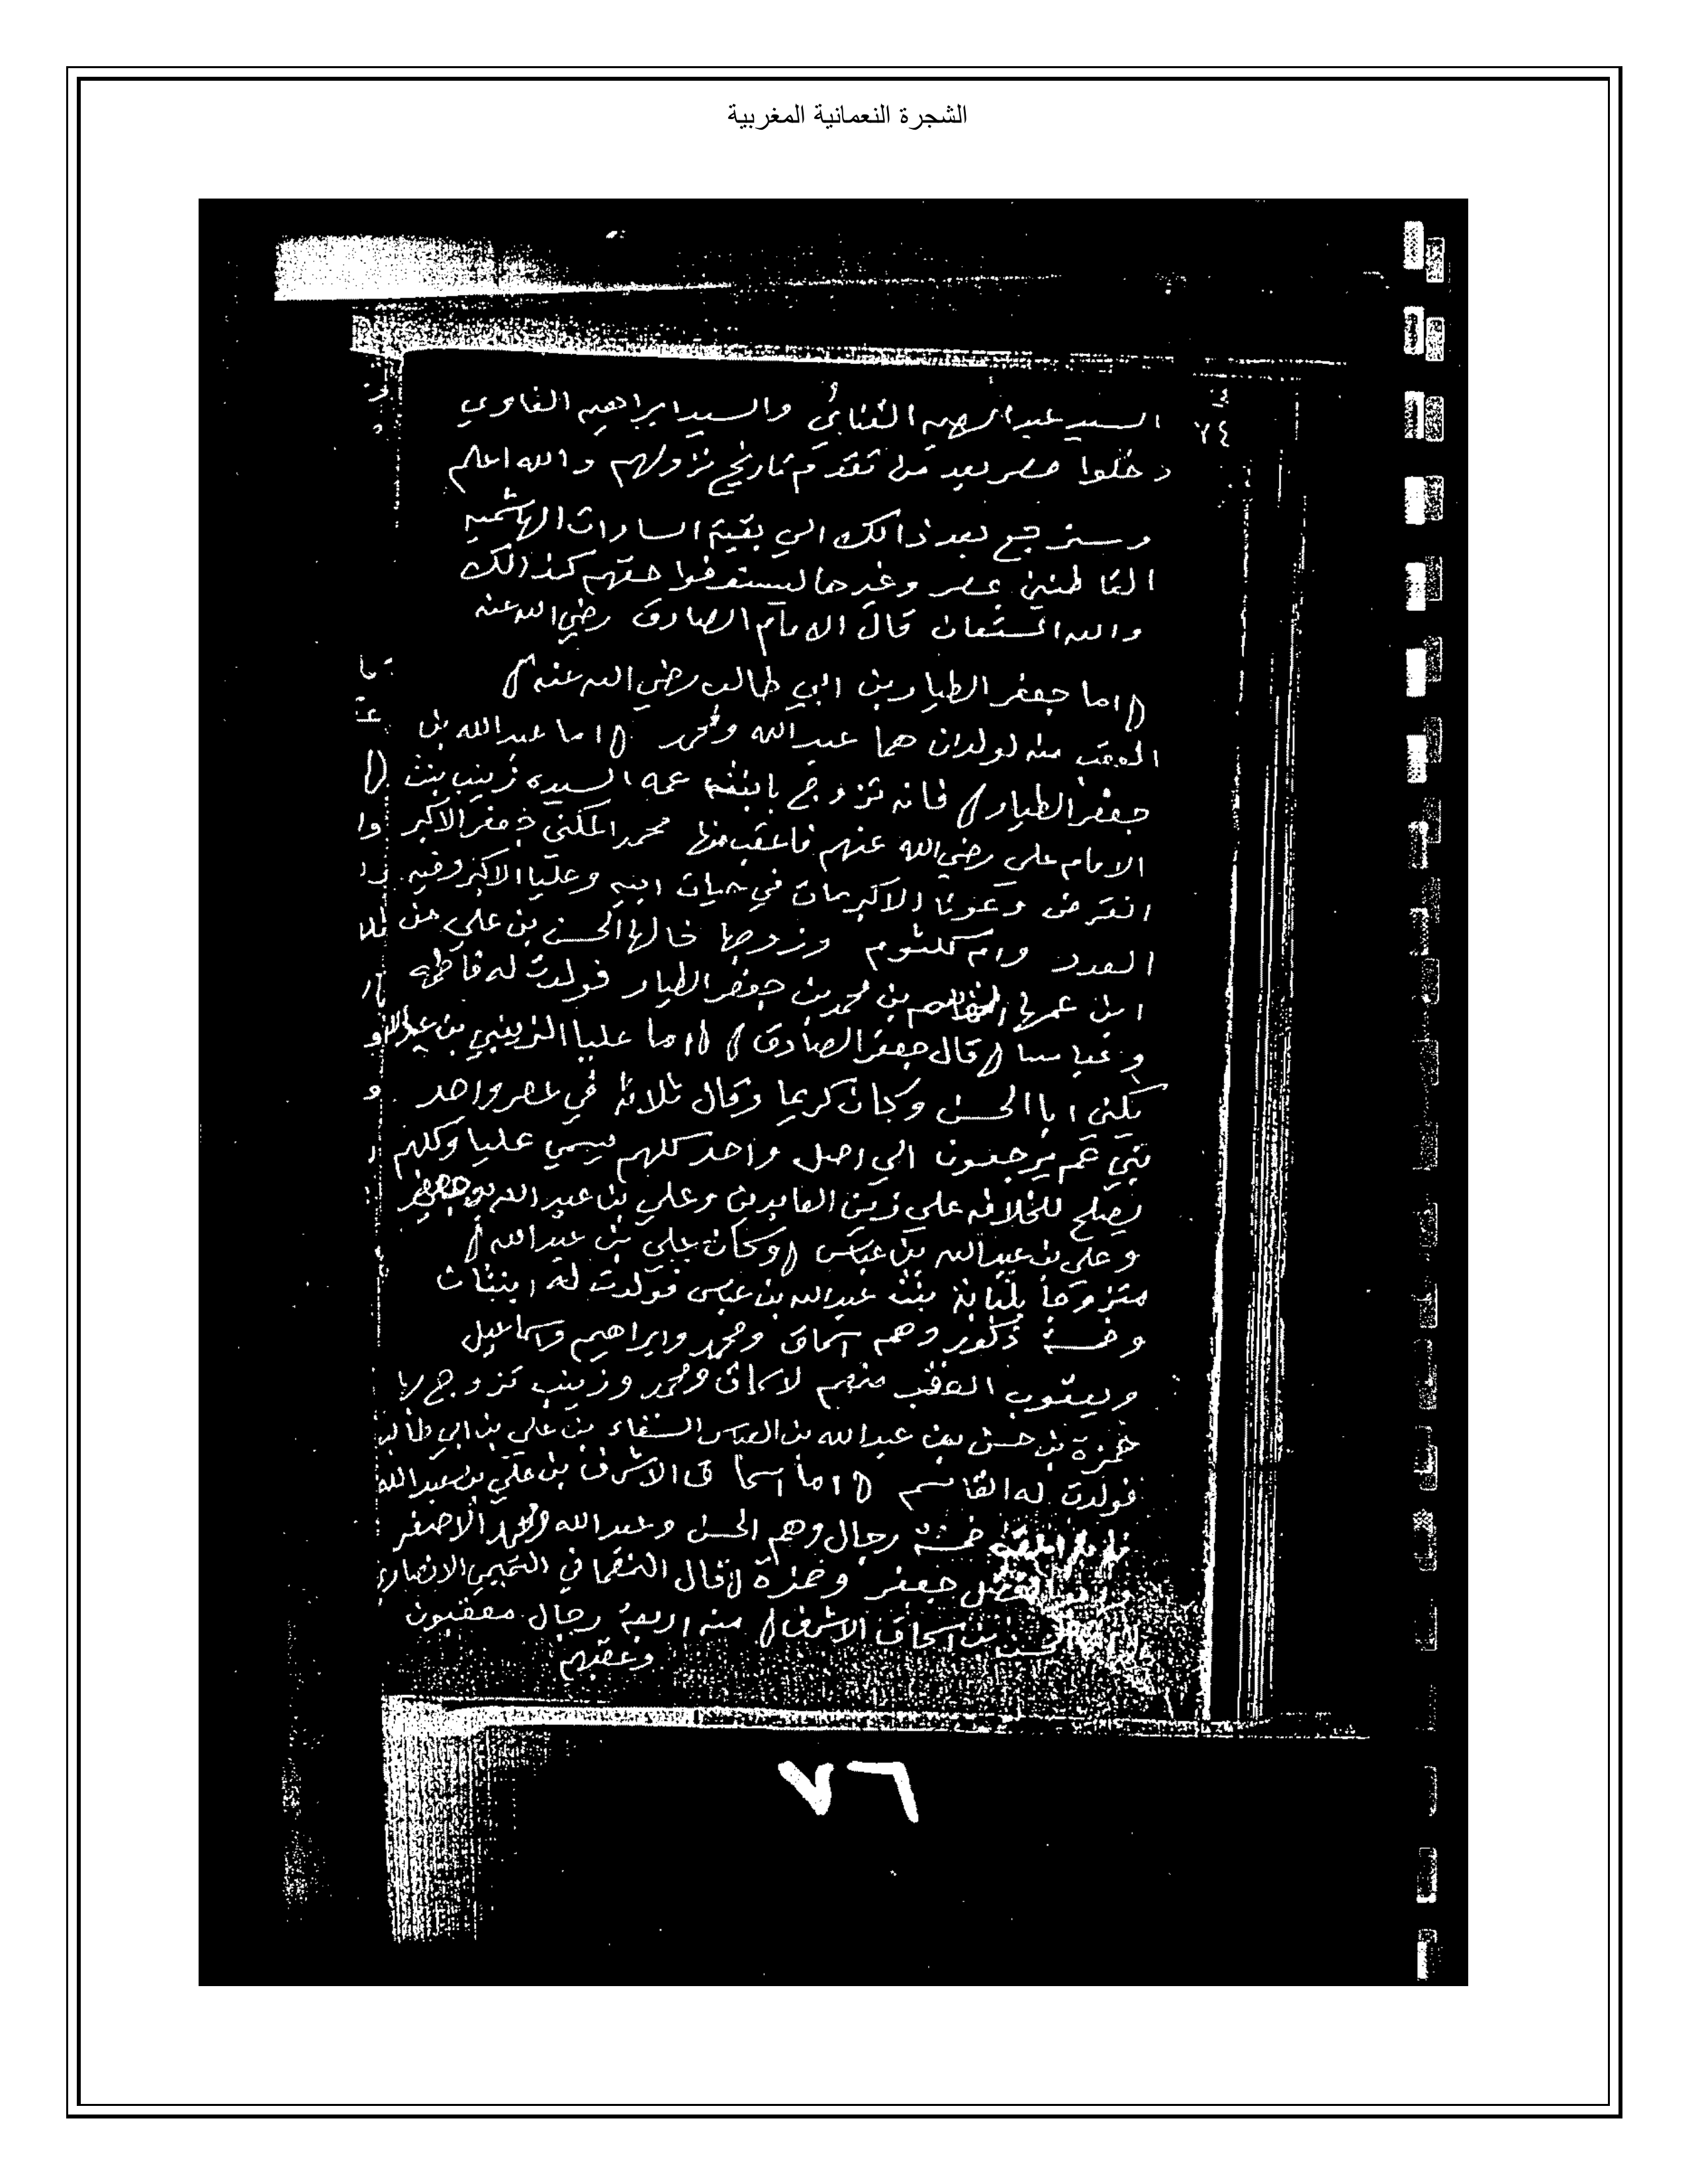 الشجرة النعمانية المغربية
٧٤
السيد عبد الرحيم القنائي والسيد ابراهيم الفاوي
دخلوا مصر بعد من تقدم تاريخ نزولهم والله اعلم
وسنرجع بعد ذالك الي بقية السادات الهاشميه
القاطنين بمصر وغيرها ليستوفوا حقهم كذالك
والله المستعان قال الامام الصادق رضي الله عنه
(اما جعفر الطيار بن ابي طالب رضي الله عنه)
العقب منه لولدان هما عبدالله ومحمد (اما عبدالله بن
جعفر الطيار) فانه تزوج بابنة عمه السيده زينب بنت
الامام علي رضي الله عنهم فاعقب منها محمد المكني جعفر الاكبر
انقرض وعونا الاكبر مات في حيات ابيه وعليا الاكبر وفيه
العدد وام كلثوم وزوجها خالها الحسن بن علي من
ابن عمها القاسم بن محمد بن جعفر الطيار فولدت له فاطمه
و (قال جعفر الصادق) (اما عليا الزينبي بن عبدالله
يكني ابا الحسن وكان كريما وقال ثلاثة في عصر واحد
بني عم يرجعون الي اصل واحد كلهم يسمي عليا وكلهم
يصلح للخلافه علي زين العابدين وعلي بن عبدالله بن جعفر
وعلي بن عبدالله بن عباس (وكان علي بن عبدالله)
متزوجا بلبابة بنت عبدالله بن عباس فولدت له ابنتان
وخمسة ذكور وهم اسحاق ومحمد وابراهيم واسماعيل
ويعقوب العقب منهم لاسحاق ومحمد وزينب تزوج بها
حمزة بن حسن بن عبدالله بن العباس السقاء بن علي بن ابي طالب
فولدت له القاسم (اما اسحاق الاشرف بن علي بن عبدالله
خمسة رجال وهم الحسن وعبدالله ومحمد الاصغر
جعفر وحمزة (قال النعماني التميمي الانصاري
الحسن بن اسحاق الاشرف) منه اربعة رجال معقبون
وعقبهم
٧٦